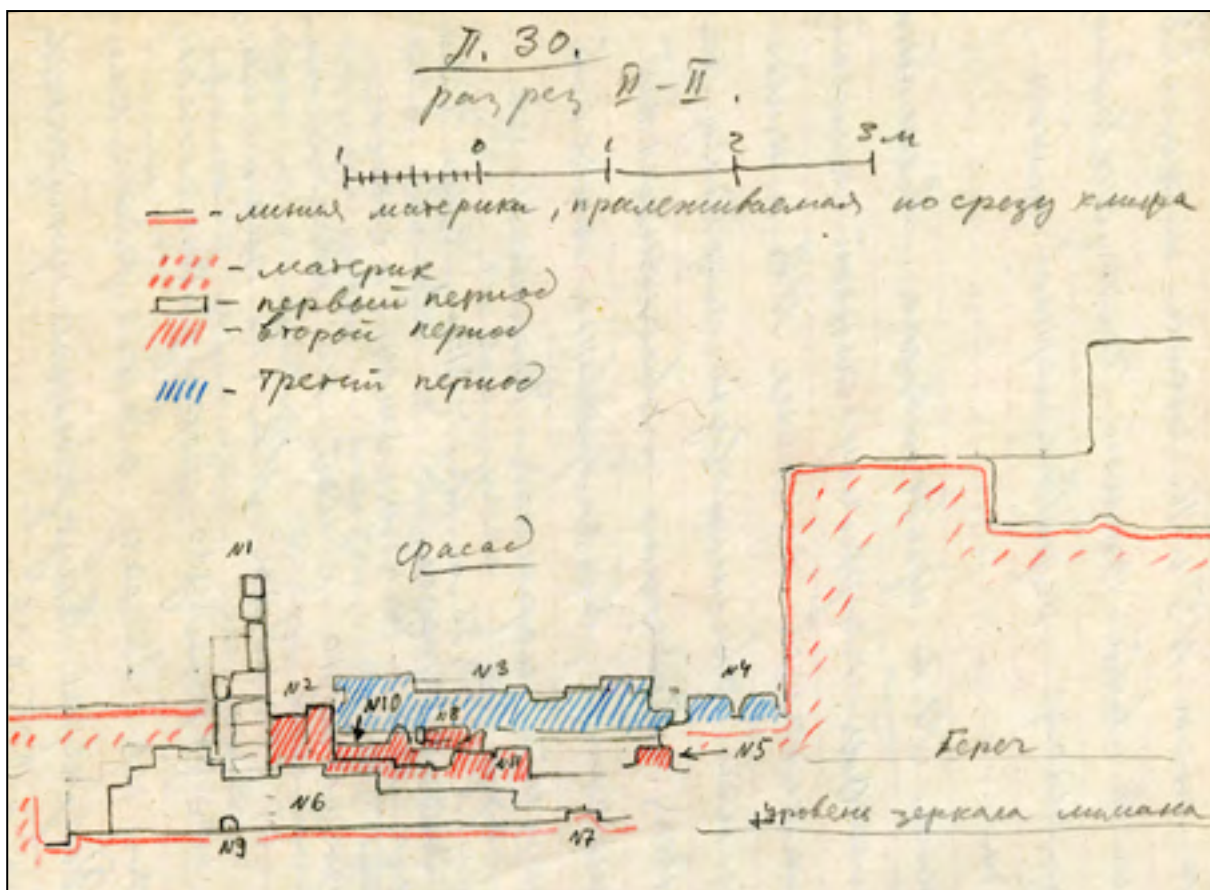 Л. 30.
разрез II - II.
1 0 1 2 3 м
- линия материка, прослеживаемая по срезу
- материк
- первый период
- второй период
- третий период
фасад
N1
N2
N3
N4
N10
N8
N5
Берег
N6
уровень зеркала лимана
N9
N7